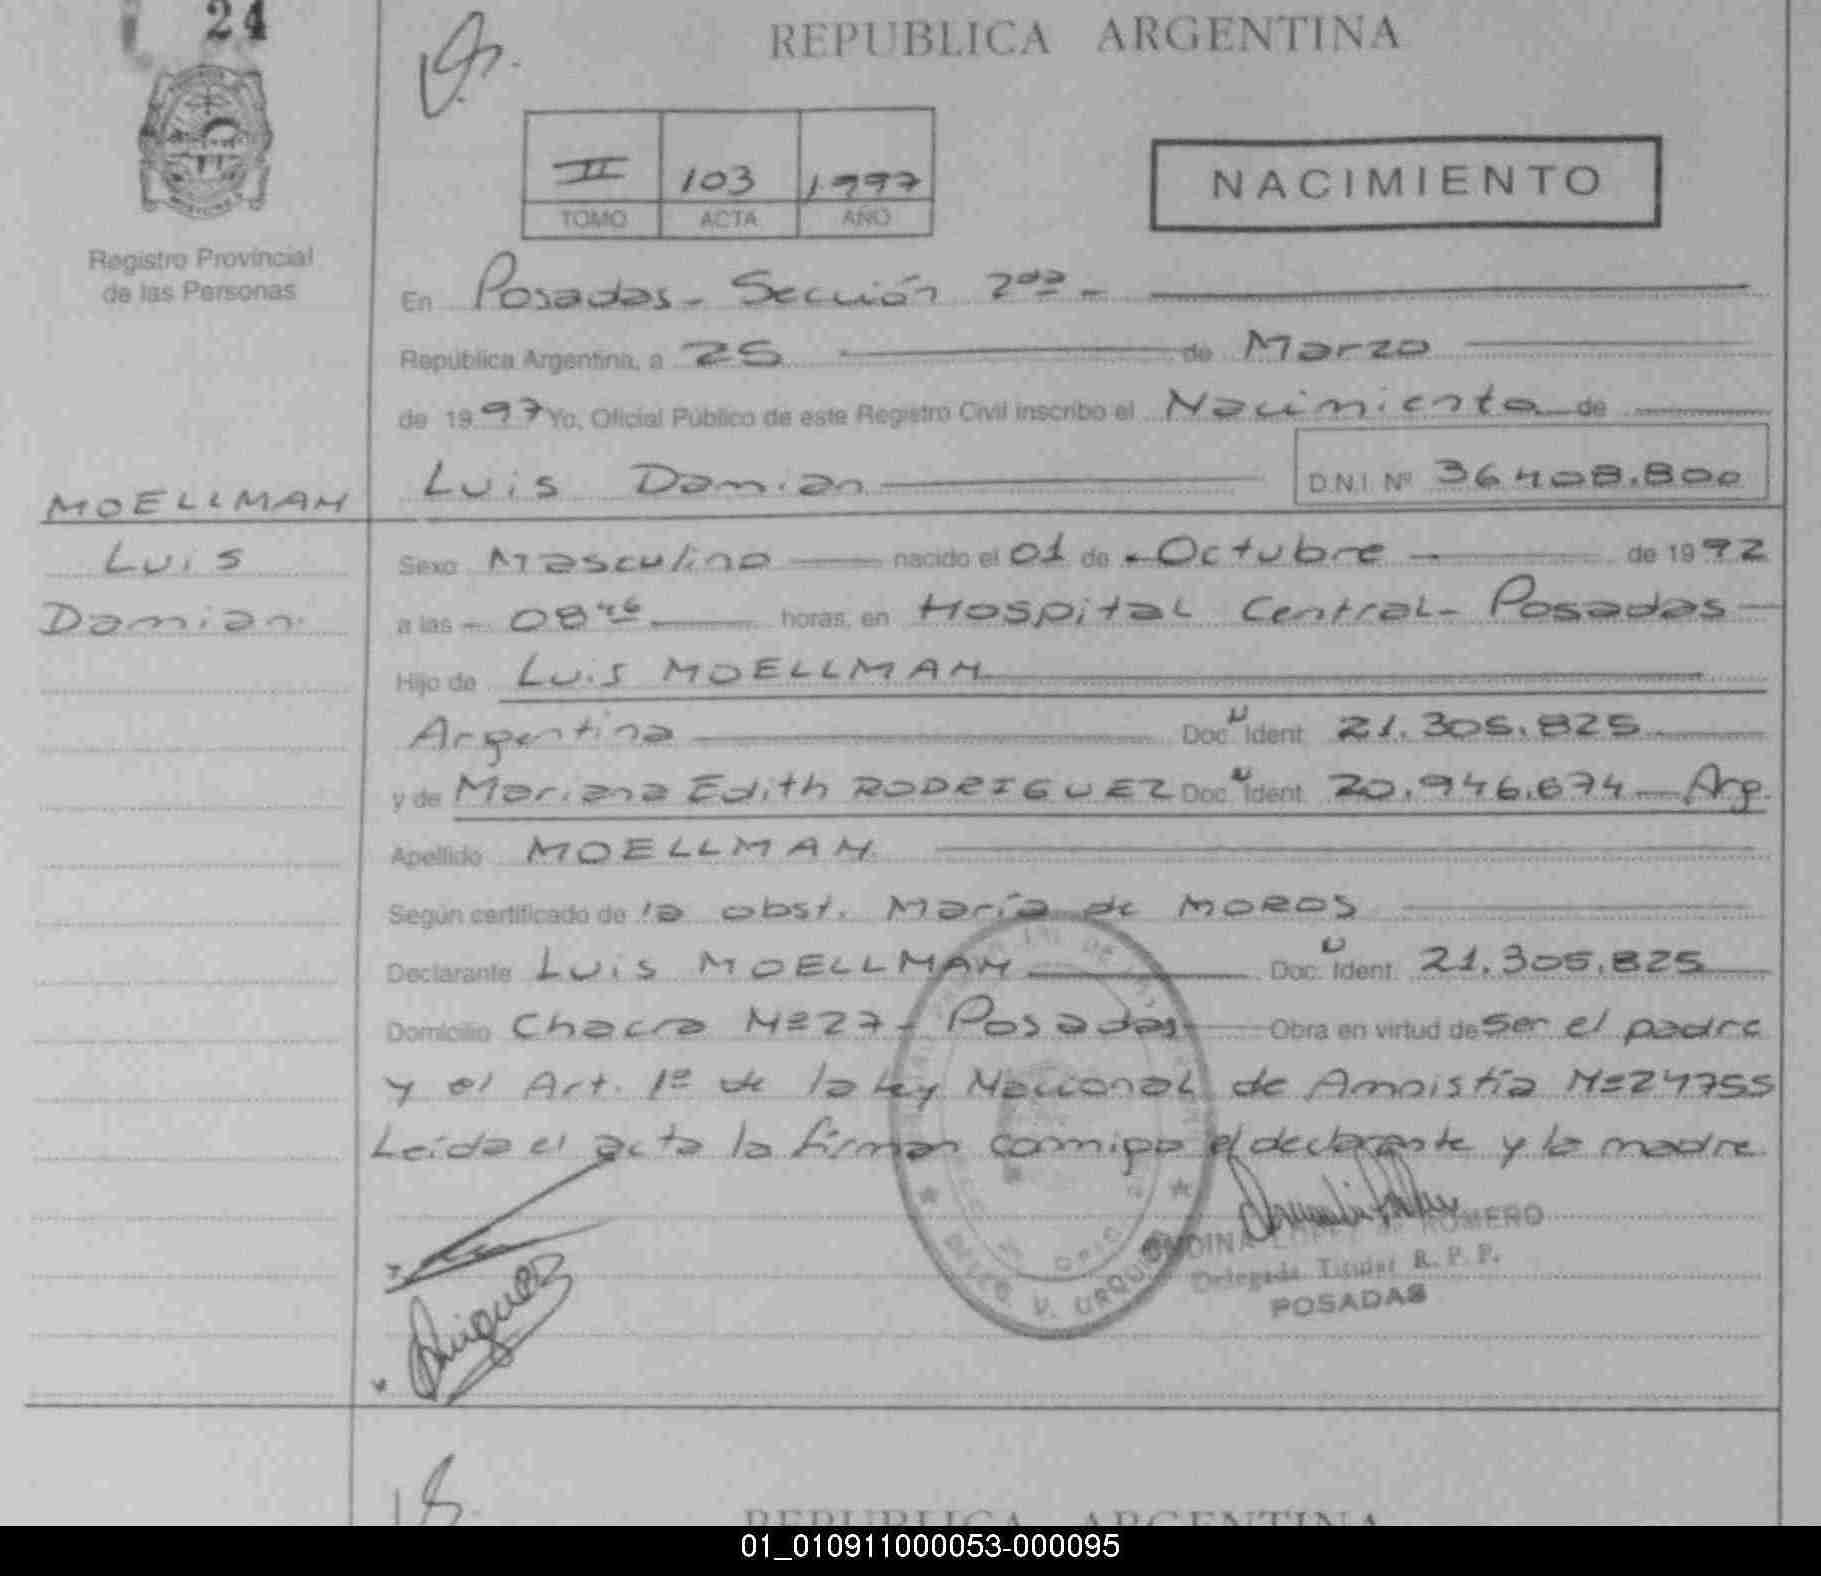 24
REPUBLICA ARGENTINA
II 103 1997
TOMO ACTA AÑO
NACIMIENTO
Registro Provincial
de las Personas
En Posadas - Sección 2da -
República Argentina, a 25 de Marzo
de 1997 Yo, Oficial Público de este Registro Civil inscribo el Nacimiento de
Luis Damian D.N.I. Nº 36408.800
MOELLMAN
Luis
Damian
Sexo Masculino nacido el 01 de Octubre de 1992
a las 08 46 horas, en Hospital Central - Posadas
Hijo de Luis MOELLMAN
Argentina Doc. U Ident. 21.305.825
y de Mariana Edith RODRIGUEZ Doc. U Ident. 20.946.674 - Arg.
Apellido MOELLMAN
Según certificado de la obst. María de MOROS
Declarante Luis MOELLMAN Doc. U Ident. 21.305.825
Domicilio Chacra Nº 27 - Posadas Obra en virtud de ser el padre
y el Art. 1º de la ley Nacional de Amnistía Nº 24755
Leída el acta la firman conmigo el declarante y la madre
LOPEZ de ROMERO
Delegada Titular R. P. P.
POSADAS
DELEG. V. URQUIZA
REPUBLICA ARGENTINA
01_010911000053-000095